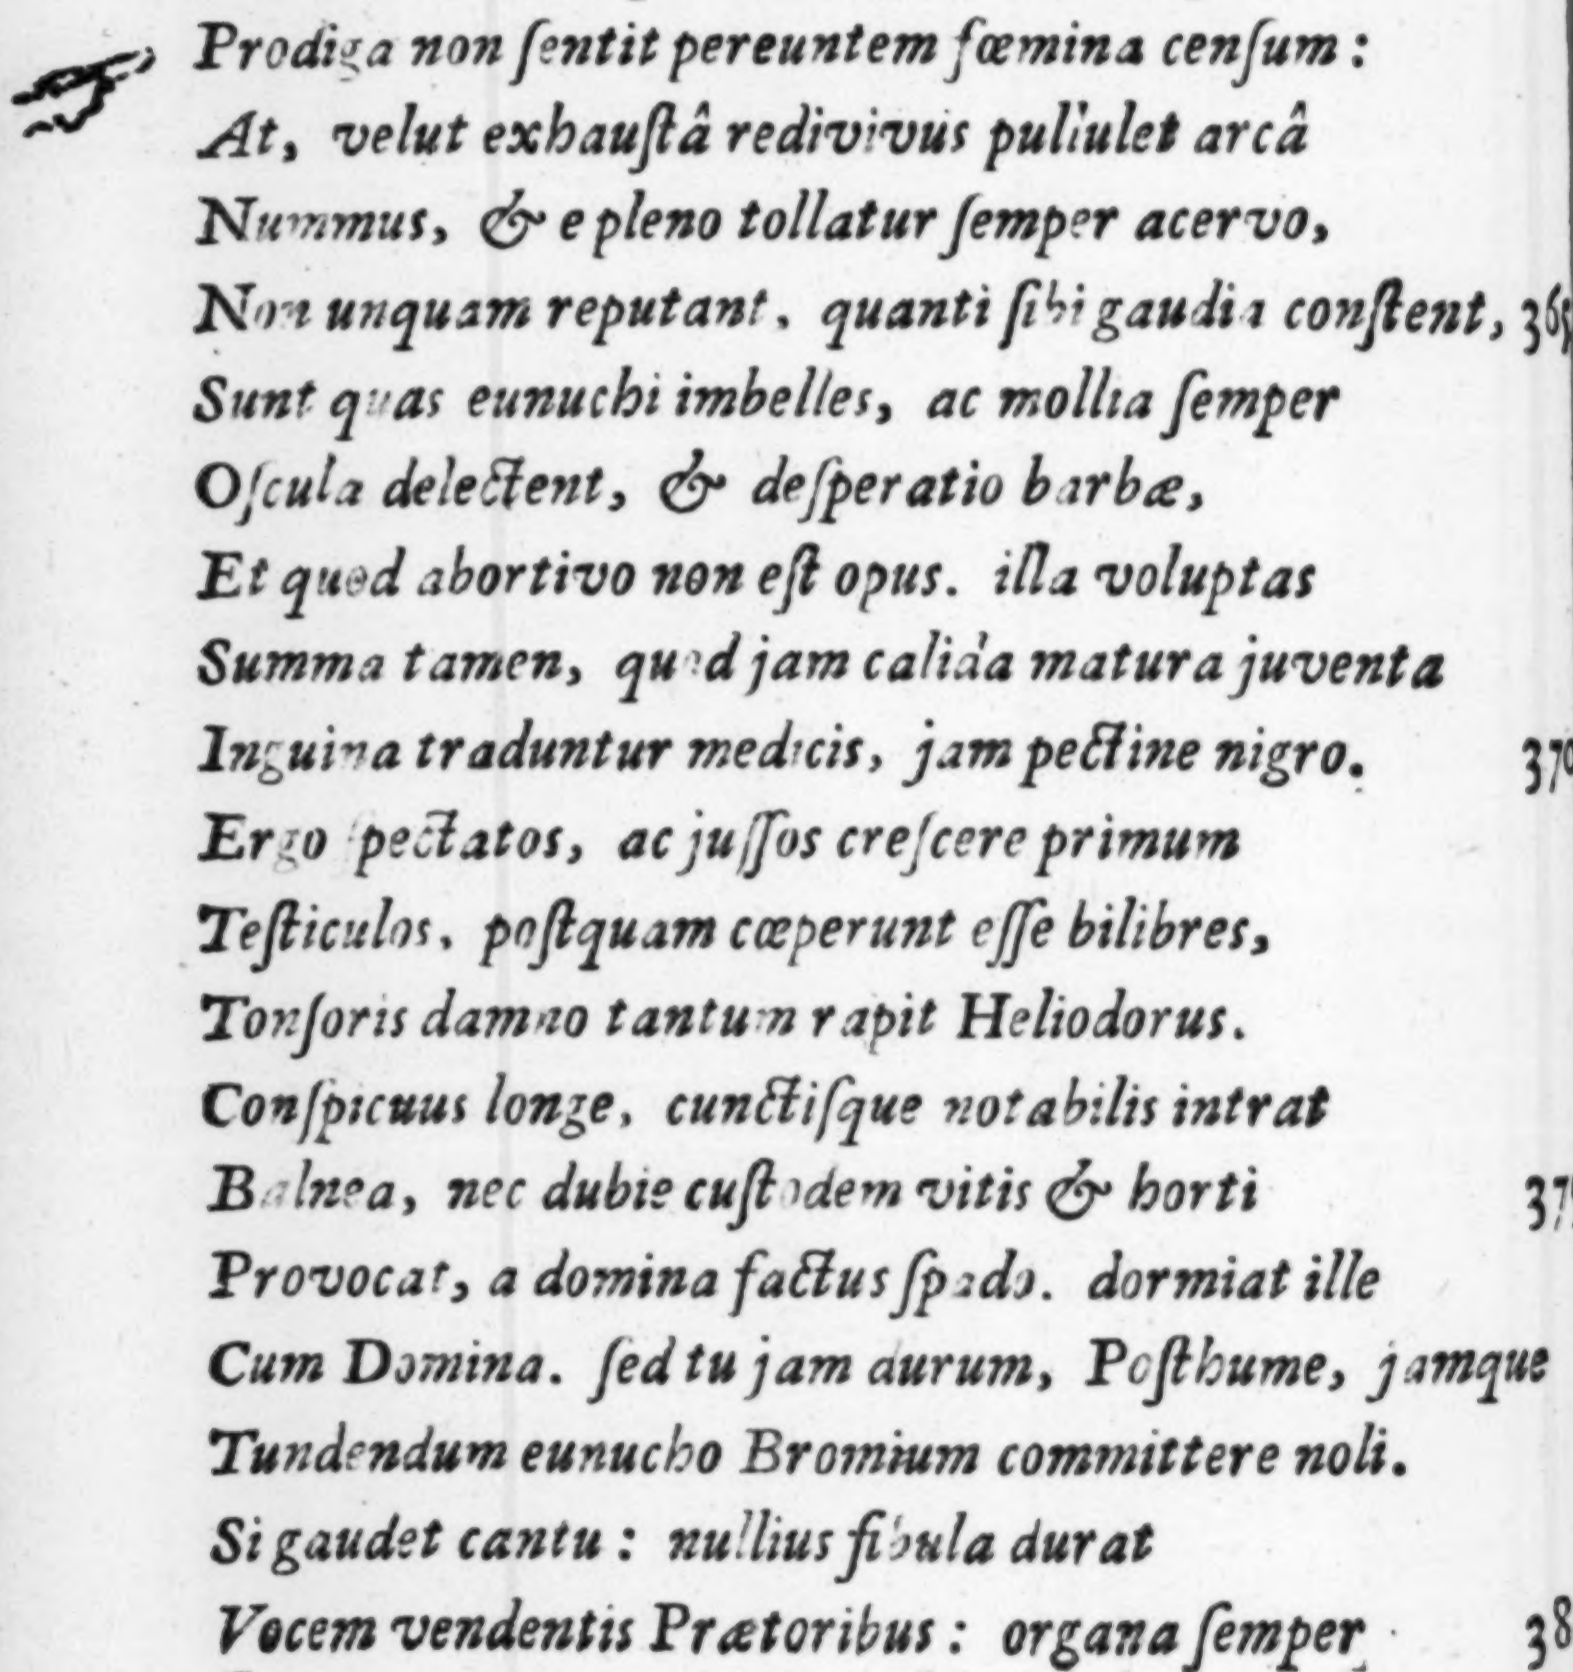 Prodiga non ſentit pereuntem fœmina cenſum :
At, velut exhauſtâ redivivus pullulet arcâ
Nummus, & e pleno tollatur ſemper acervo,
Non unquam reputant, quanti ſibi gaudia conſtent, 365
Sunt quas eunuchi imbelles, ac mollia ſemper
Oſcula delectent, & deſperatio barbæ,
Et quod abortivo non eſt opus. illa voluptas
Summa tamen, quod jam calida matura juventa
Inguina traduntur medicis, jam pectine nigro. 370
Ergo ſpectatos, ac juſſos creſcere primum
Teſticulos, poſtquam cœperunt eſſe bilibres,
Tonſoris damno tantum rapit Heliodorus.
Conſpicuus longe, cunctiſque notabilis intrat
Balnea, nec dubie cuſtodem vitis & horti 37
Provocat, a domina factus ſpado. dormiat ille
Cum Domina. ſed tu jam durum, Poſthume, jamque
Tundendum eunucho Bromium committere noli.
Si gaudet cantu : nullius fibula durat
Vocem vendentis Prætoribus : organa ſemper 38